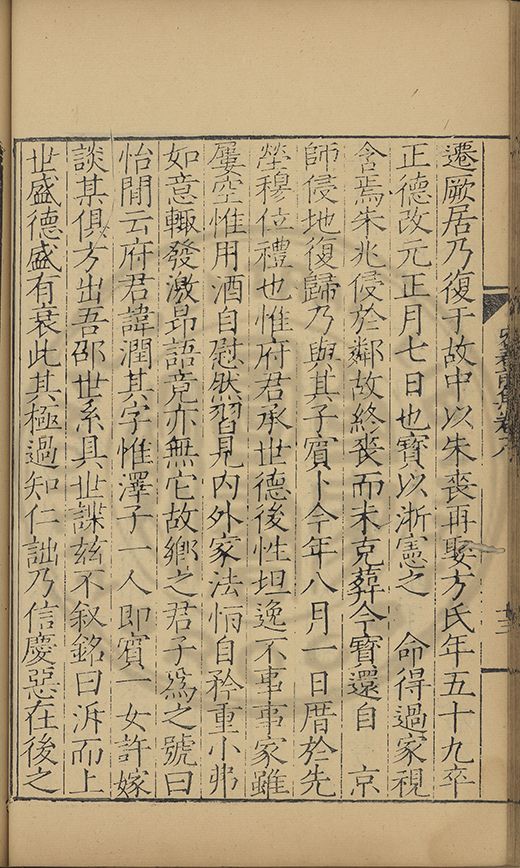 遷厥居乃復于故中以朱喪再娶方氏年五十九卒
正德改元正月七日也寶以浙憲之　命得過家視
含焉朱兆侵於鄰故終喪而未克葬今寶還自　京
師侵地復歸乃與其子賓卜今年八月一日厝於先
塋穆位禮也惟府君承世德後性坦逸不事事家雖
屢空惟用酒自慰然習見内外家法恒自矜重小弗
如意輙發激昻語竟亦無它故鄉之君子爲之號曰
怡閒云府君諱潤其字惟澤子一人即賓一女許嫁
談某俱方出吾邵世系具世諜兹不叙銘曰泝而上
世盛德盛有衰此其極過知仁詘乃信慶惡在後之
容春堂集卷八
十二